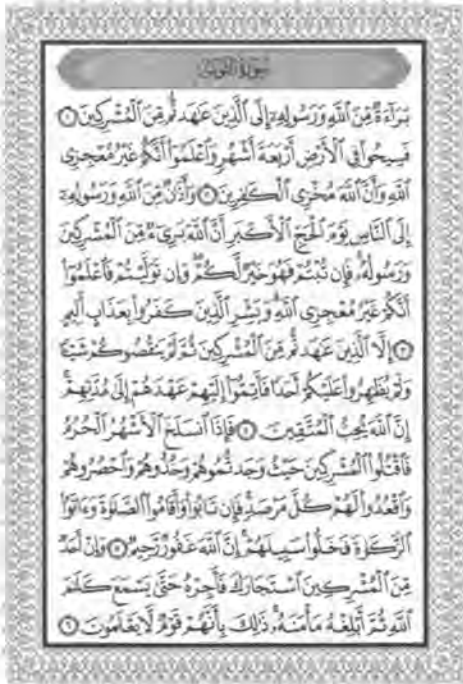 سُورَةُ التَّوۡبَةِ
بَرَآءَةٞ مِّنَ ٱللَّهِ وَرَسُولِهِۦٓ إِلَى ٱلَّذِينَ عَٰهَدتُّم مِّنَ ٱلۡمُشۡرِكِينَ ١
فَسِيحُواْ فِي ٱلۡأَرۡضِ أَرۡبَعَةَ أَشۡهُرٖ وَٱعۡلَمُوٓاْ أَنَّكُمۡ غَيۡرُ مُعۡجِزِي
ٱللَّهِ وَأَنَّ ٱللَّهَ مُخۡزِي ٱلۡكَٰفِرِينَ ٢ وَأَذَٰنٞ مِّنَ ٱللَّهِ وَرَسُولِهِۦٓ
إِلَى ٱلنَّاسِ يَوۡمَ ٱلۡحَجِّ ٱلۡأَكۡبَرِ أَنَّ ٱللَّهَ بَرِيٓءٞ مِّنَ ٱلۡمُشۡرِكِينَ
وَرَسُولُهُۥۚ فَإِن تُبۡتُمۡ فَهُوَ خَيۡرٞ لَّكُمۡۖ وَإِن تَوَلَّيۡتُمۡ فَٱعۡلَمُوٓاْ
أَنَّكُمۡ غَيۡرُ مُعۡجِزِي ٱللَّهِۗ وَبَشِّرِ ٱلَّذِينَ كَفَرُواْ بِعَذَابٍ أَلِيمٍ
٣ إِلَّا ٱلَّذِينَ عَٰهَدتُّم مِّنَ ٱلۡمُشۡرِكِينَ ثُمَّ لَمۡ يَنقُصُوكُمۡ شَيۡـٔٗا
وَلَمۡ يُظَٰهِرُواْ عَلَيۡكُمۡ أَحَدٗا فَأَتِمُّوٓاْ إِلَيۡهِمۡ عَهۡدَهُمۡ إِلَىٰ مُدَّتِهِمۡۚ
إِنَّ ٱللَّهَ يُحِبُّ ٱلۡمُتَّقِينَ ٤ فَإِذَا ٱنسَلَخَ ٱلۡأَشۡهُرُ ٱلۡحُرُمُ
فَٱقۡتُلُواْ ٱلۡمُشۡرِكِينَ حَيۡثُ وَجَدتُّمُوهُمۡ وَخُذُوهُمۡ وَٱحۡصُرُوهُمۡ
وَٱقۡعُدُواْ لَهُمۡ كُلَّ مَرۡصَدٖۚ فَإِن تَابُواْ وَأَقَامُواْ ٱلصَّلَوٰةَ وَءَاتَوُاْ
ٱلزَّكَوٰةَ فَخَلُّواْ سَبِيلَهُمۡۚ إِنَّ ٱللَّهَ غَفُورٞ رَّحِيمٞ ٥ وَإِنۡ أَحَدٞ
مِّنَ ٱلۡمُشۡرِكِينَ ٱسۡتَجَارَكَ فَأَجِرۡهُ حَتَّىٰ يَسۡمَعَ كَلَٰمَ
ٱللَّهِ ثُمَّ أَبۡلِغۡهُ مَأۡمَنَهُۥۚ ذَٰلِكَ بِأَنَّهُمۡ قَوۡمٞ لَّا يَعۡلَمُونَ ٦